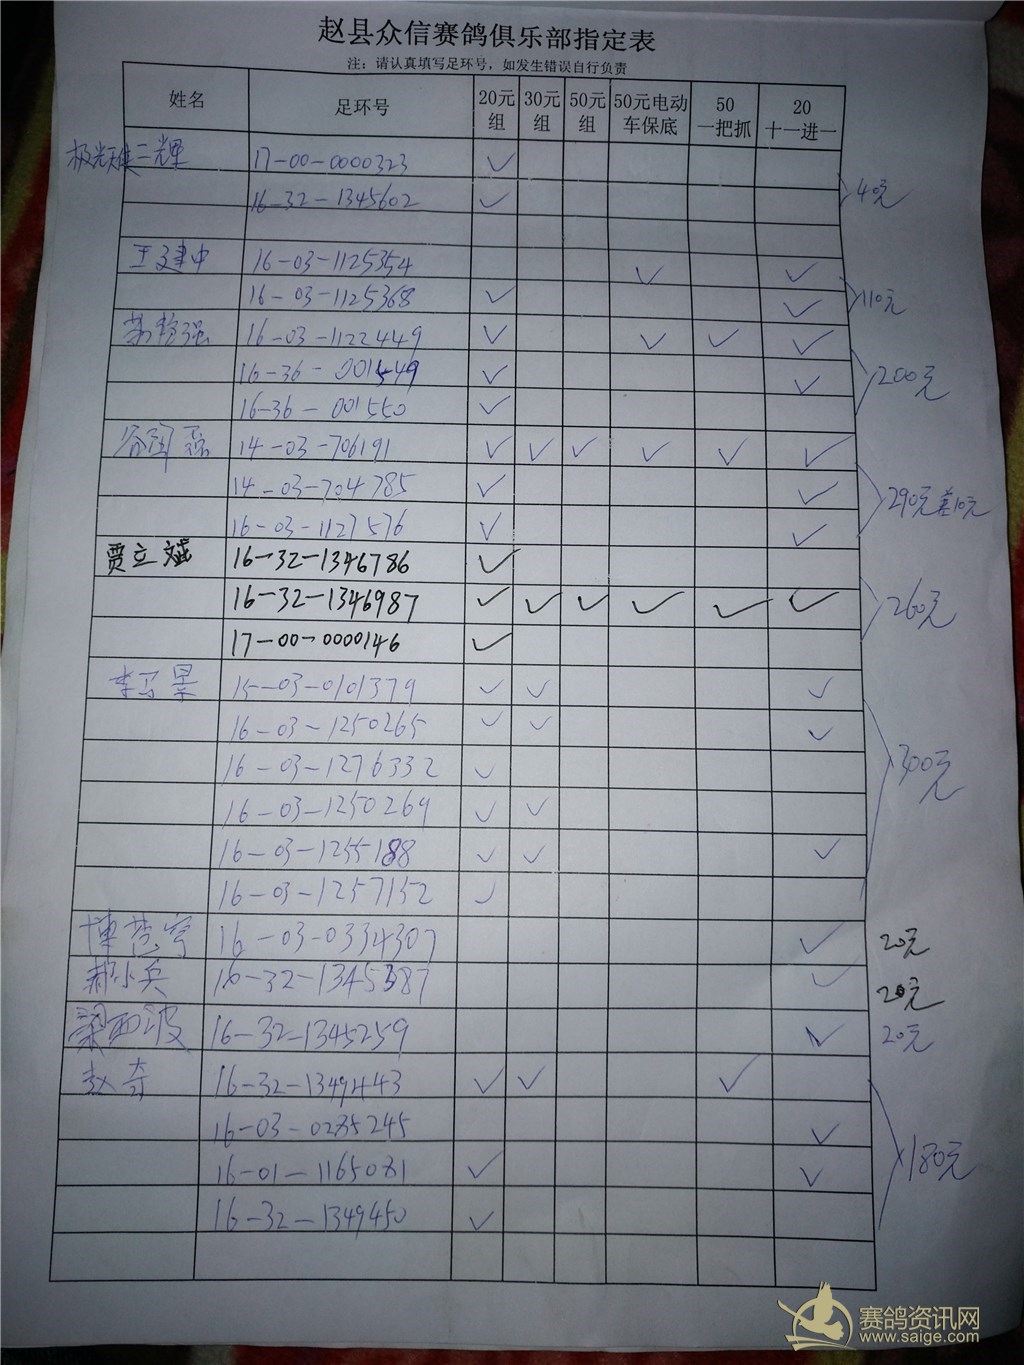 赵县众信赛鸽俱乐部指定表
注：请认真填写足环号，如发生错误自行负责
姓名 足环号 20元组 30元组 50元组 50元电动车保底 50一把抓 20十一进一
17-00-0000323 ✓
16-32-1345602 ✓
40元
王建中 16-03-1125354 ✓ ✓
16-03-1125368 ✓ ✓
110元
16-03-1122449 ✓ ✓ ✓ ✓
16-36-001549 ✓ ✓
16-36-001550 ✓
200元
14-03-706191 ✓ ✓ ✓ ✓ ✓ ✓
14-03-704785 ✓ ✓
16-03-1127576 ✓ ✓
290元差10元
贾立斌 16-32-1346786 ✓
16-32-1346987 ✓ ✓ ✓ ✓ ✓ ✓
17-00-0000146 ✓
260元
15-03-0101379 ✓ ✓ ✓
16-03-1250265 ✓ ✓ ✓
16-03-1276332 ✓
16-03-1250269 ✓ ✓
16-03-1255188 ✓ ✓ ✓
16-03-1257152 ✓
300元
16-03-0334307 ✓ 20元
郝小兵 16-32-1345387 ✓ 20元
梁西波 16-32-1345259 ✓ 20元
赵奇 16-32-1349443 ✓ ✓ ✓
16-03-0235245 ✓
16-01-1165081 ✓ ✓
16-32-1349450 ✓
180元
赛鸽资讯网
www.saige.com